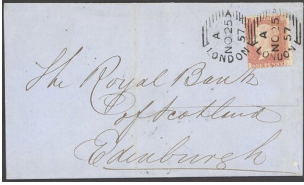 A
A
NO 25
57
LONDON
A
A
NO 25
57
LONDON
The Royal Bank
of Scotland
Edinburgh